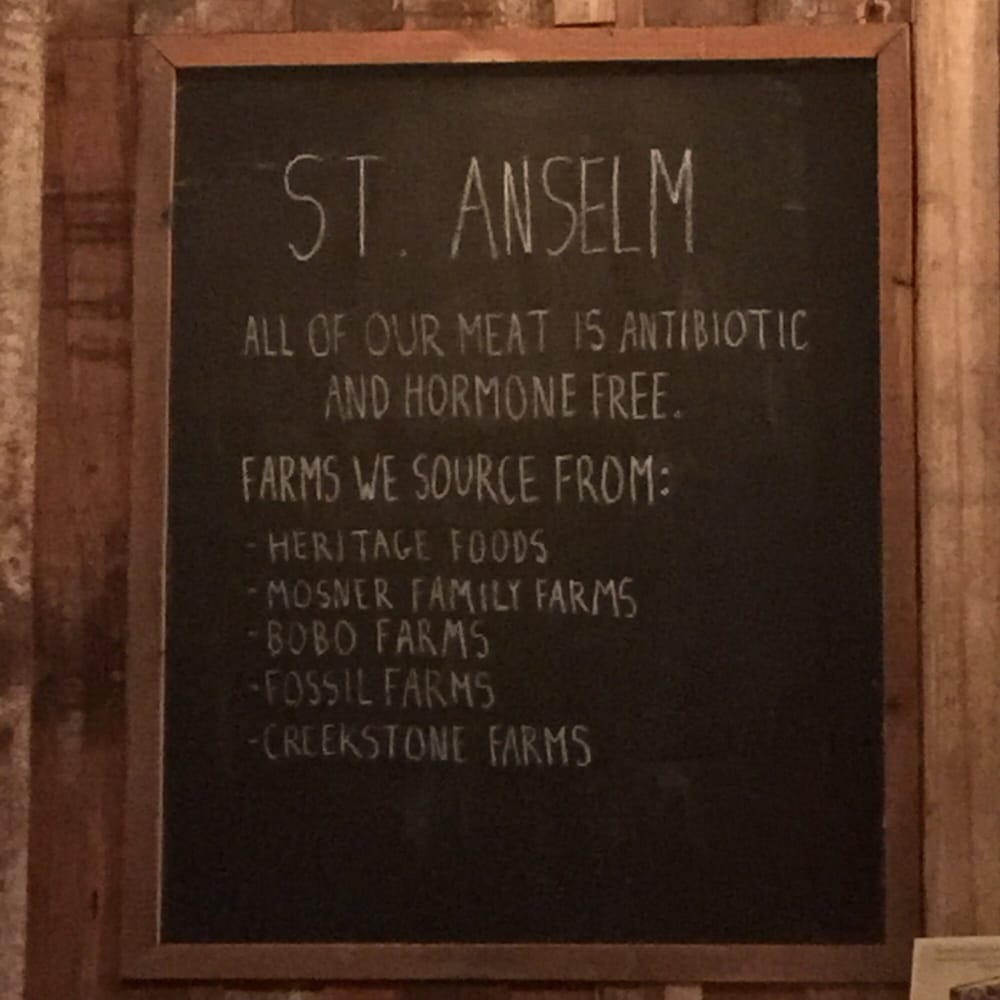 ST. ANSELM
ALL OF OUR MEAT IS ANTIBIOTIC
AND HORMONE FREE.
FARMS WE SOURCE FROM:
- HERITAGE FOODS
- MOSNER FAMILY FARMS
- BOBO FARMS
- FOSSIL FARMS
- CREEKSTONE FARMS